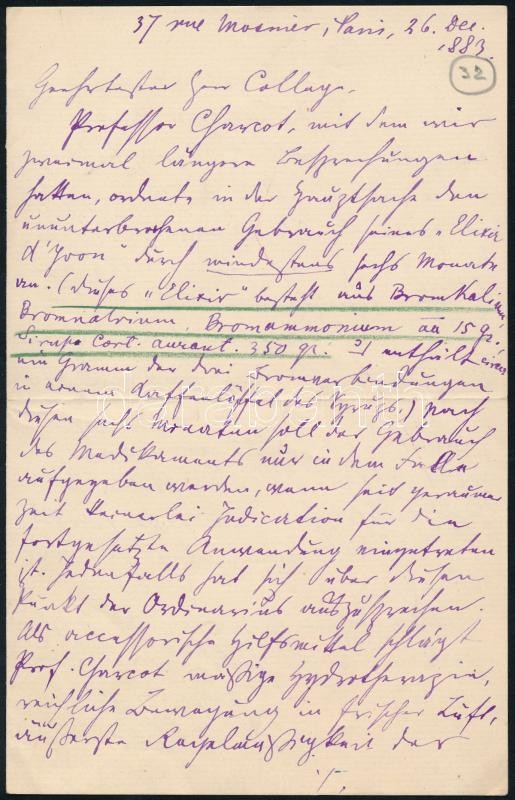 37 rue Mosnier, Paris, 26. Dec.
1883.
32
Geehrtester Herr College,
Professor Charcot, mit dem wir
zweimal längere Besprechungen
hatten, ordnete in der Hauptsache den
ununterbrochenen Gebrauch seines „Elixir
d'Yvon" durch mindestens sechs Monate
an. (Dieses „Elixir" besteht aus Bromkalium,
Bromnatrium, Bromammonium āā 15 gr.!
Sirup. cort. aurant. 350 gr. enthält circa
ein Gramm der drei Bromverbindungen
in einem Kaffeelöffel des Syrups.) Nach
diesen sechs Monaten soll der Gebrauch
des Medikaments nur in dem Falle
aufgegeben werden, wenn seit geraumer
Zeit keinerlei Indication für die
fortgesetzte Anwendung eingetreten
ist. Jedenfalls hat sich über diesen
Punkt der Ordinarius auszusprechen.
Als accessorische Hilfsmittel schlägt
Prof. Charcot mäßige Hydrotherapie,
reichliche Bewegung in frischer Luft,
äußerste Regelmässigkeit der
darabanth